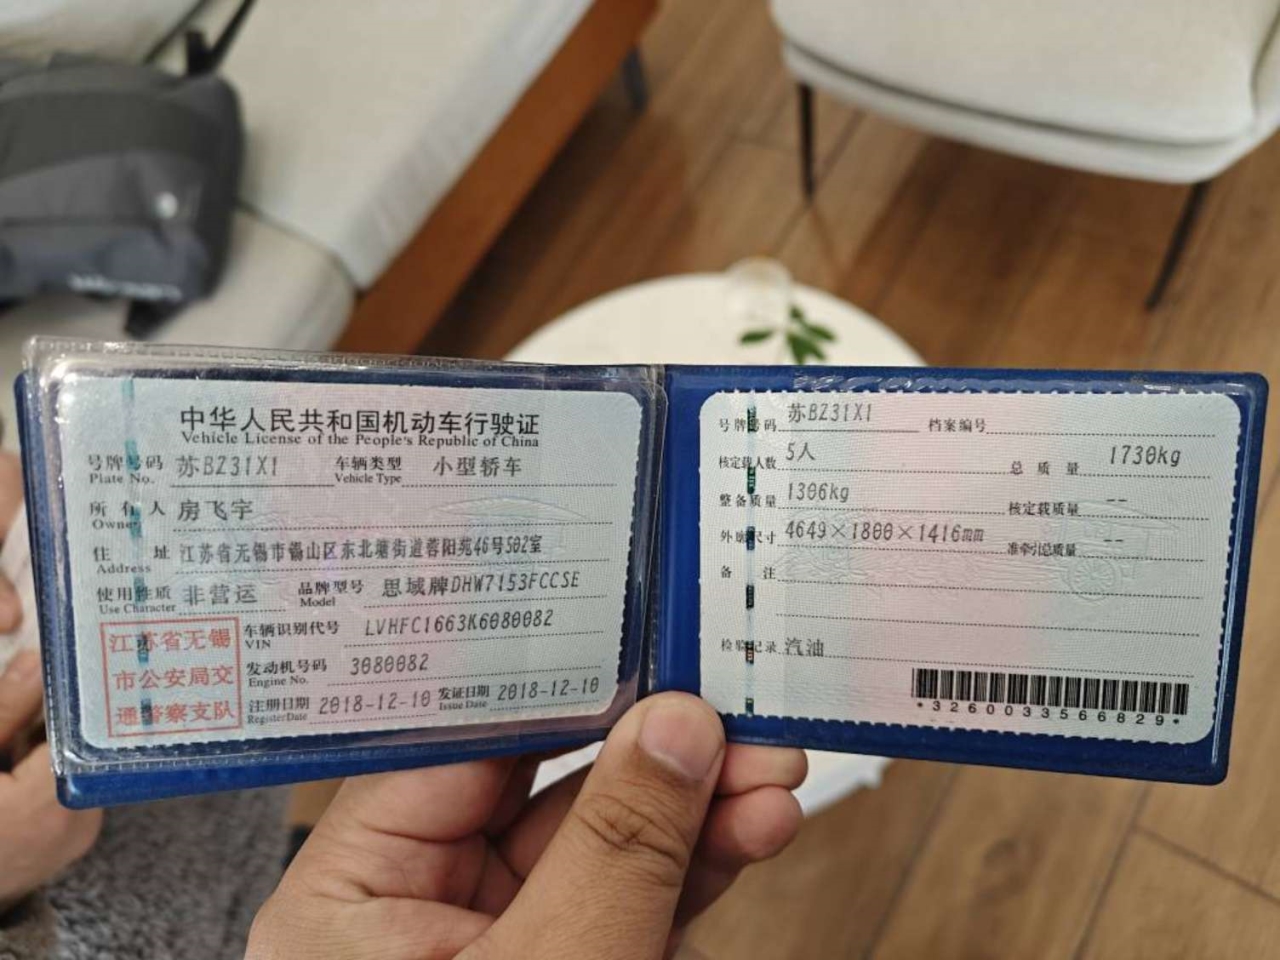 中华人民共和国机动车行驶证
Vehicle License of the People's Republic of China
号牌号码 苏BZ31X1 车辆类型 小型轿车
Plate No. Vehicle Type
所有人 房飞宇
Owner
住址 江苏省无锡市锡山区东北塘街道蓉阳苑46号502室
Address
使用性质 非营运 品牌型号 思域牌DHW7153FCCSE
Use Character Model
江苏省无锡
市公安局交
通警察支队
车辆识别代号 LVHFC1663K6080082
VIN
发动机号码 3080082
Engine No.
注册日期 2018-12-10 发证日期 2018-12-10
Register Date Issue Date
号牌号码 苏BZ31X1 档案编号
核定载人数 5人 总质量 1730kg
整备质量 1306kg 核定载质量 --
外廓尺寸 4649×1800×1416mm 准牵引总质量 --
备注
检验记录 汽油
*3260033566829*